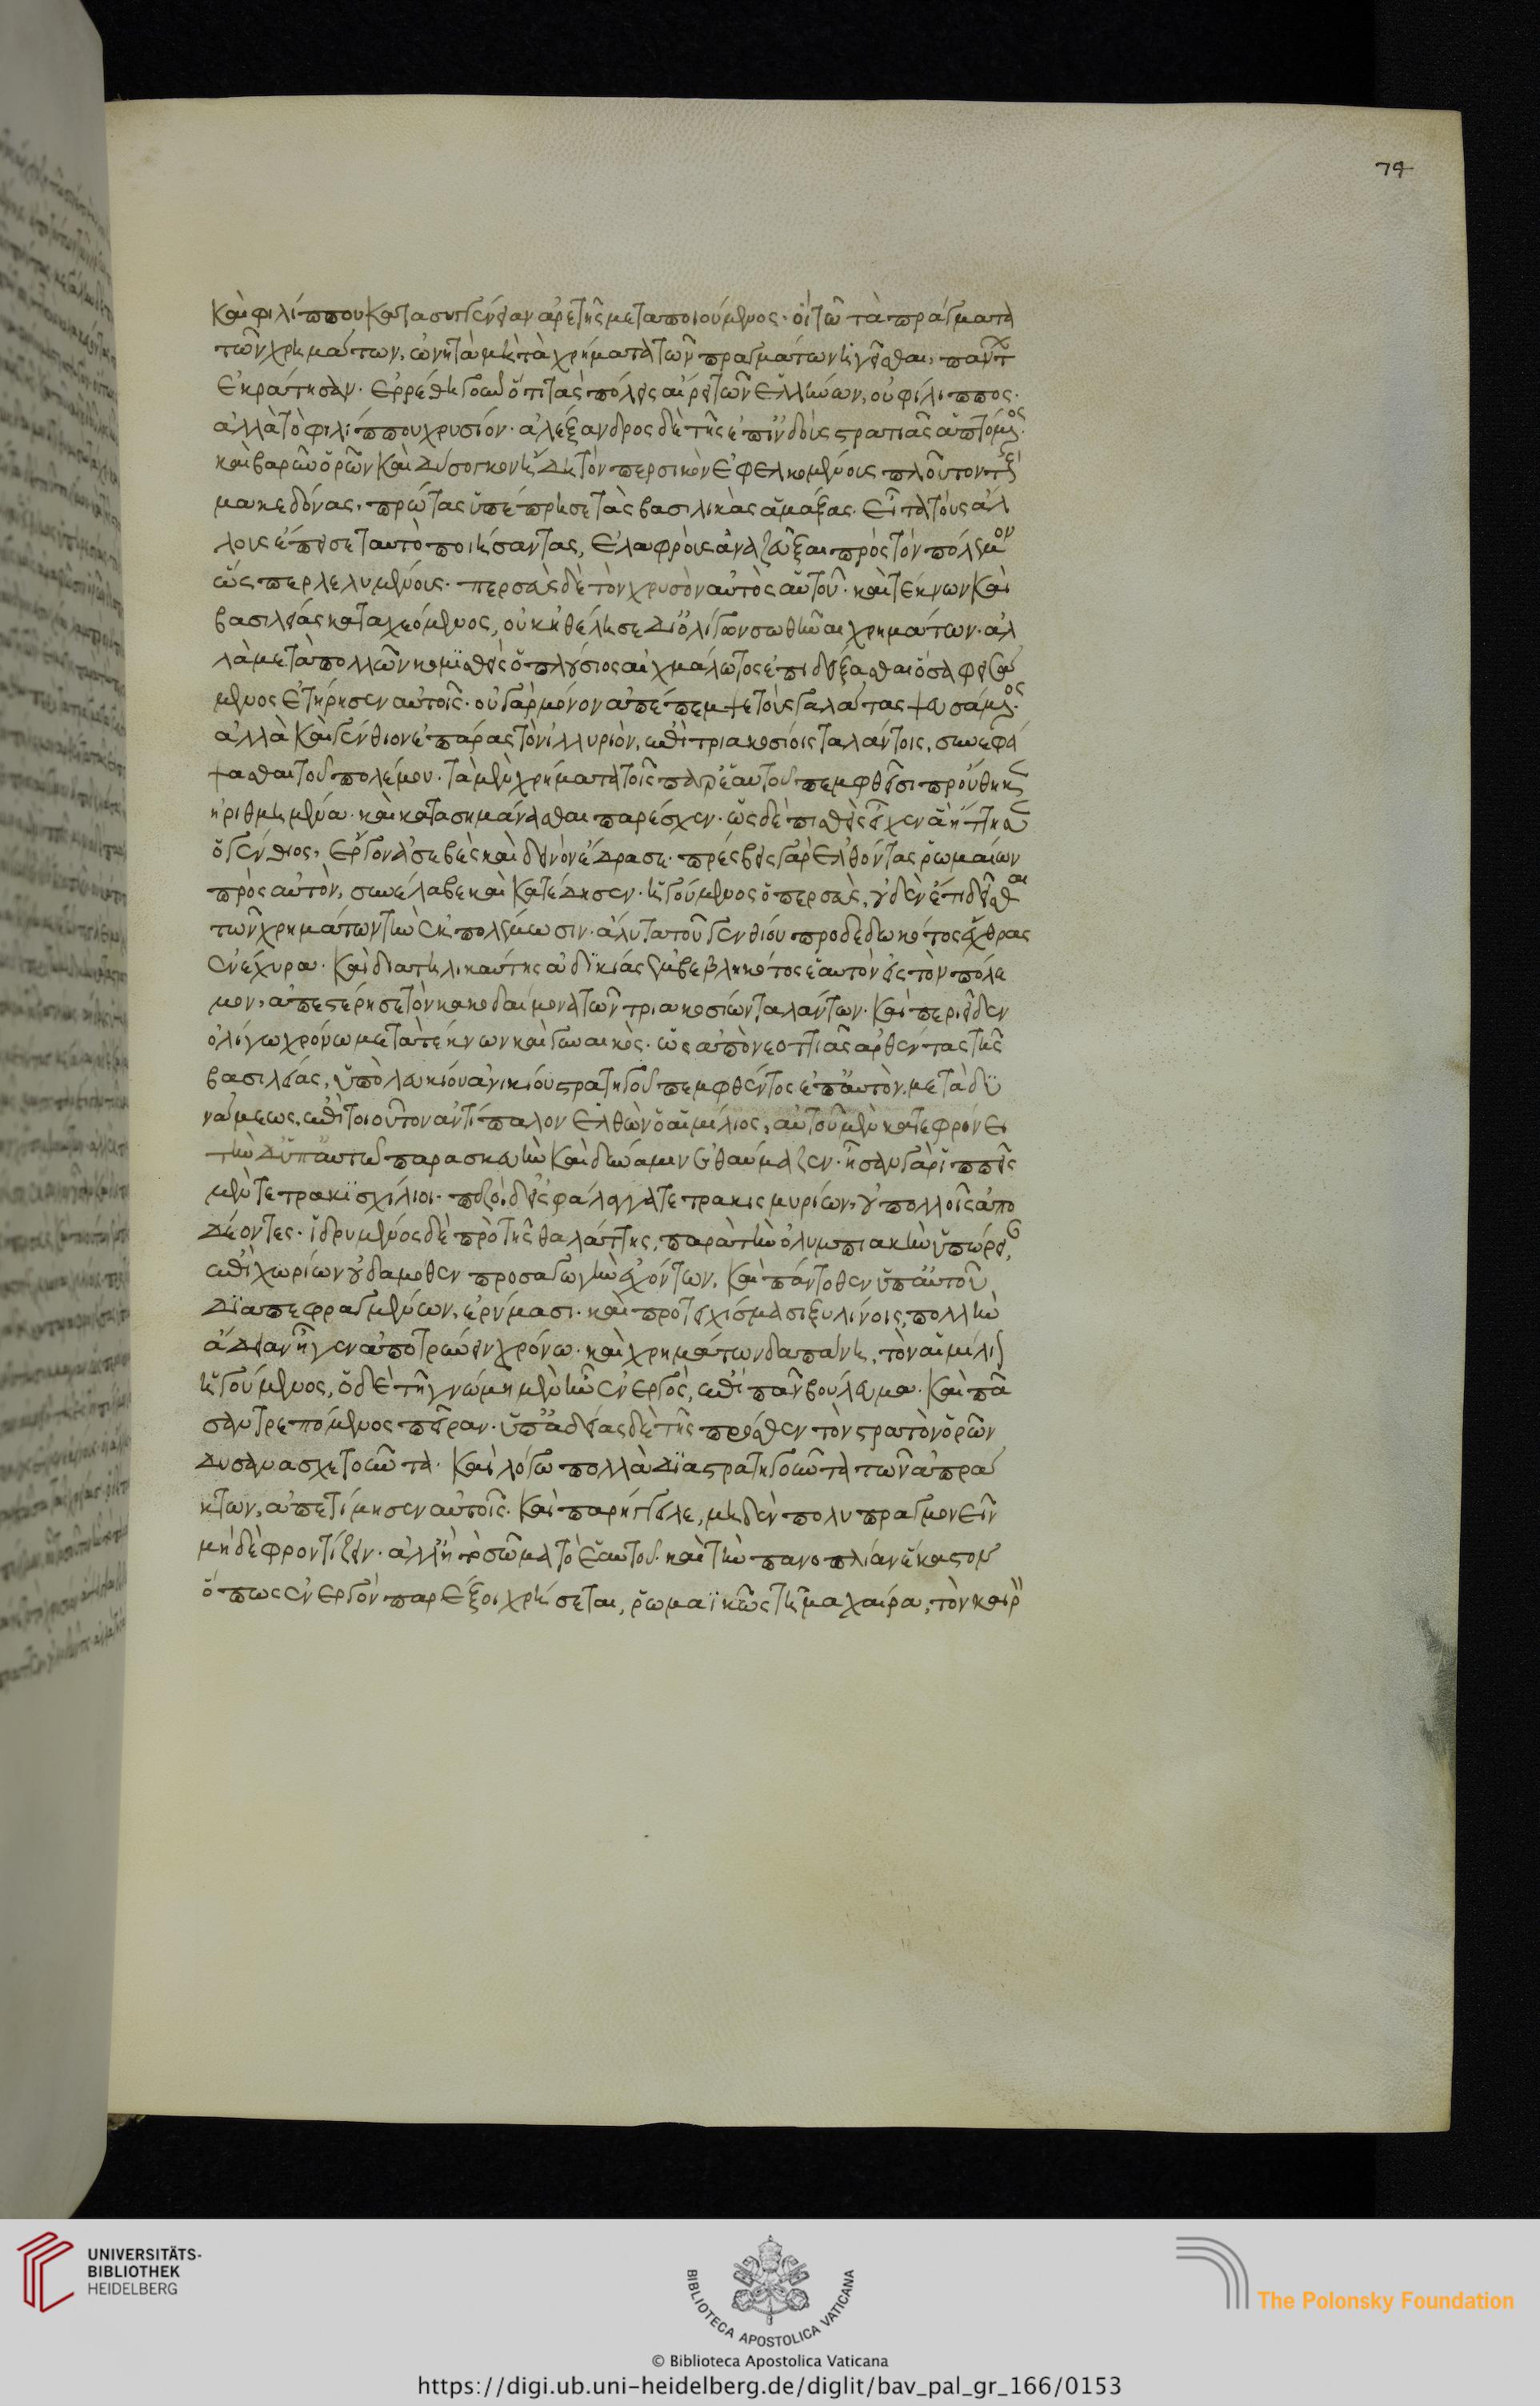 καὶ φιλίππου κατὰ συγγένειαν ἀρετῆς μεταποιούμενος· οἳ τῶ τὰ πράγματα
τῶν χρημάτων, ὠνητὰ μὴ τὰ χρήματα τῶν πραγμάτων ἡγεῖσθαι, πάντ
ἐκράτησαν· ἐρρέθη γοῦν ὅτι τὰς πόλεις αἱρεῖ τῶν ἑλλήνων, οὐ φίλιππος·
ἀλλὰ τὸ φιλίππου χρυσίον· ἀλέξανδρος δὲ τῆς ἐπ' ἰνδοὺς στρατιᾶς ἁπτόμενος·
καὶ βαρὺν ὁρῶν καὶ δύσογκον ἤδη τὸν περσικὸν ἐφελκομένους πλοῦτον τοὺς
μακεδόνας, πρώτας ὑπέπρησε τὰς βασιλικὰς ἁμάξας· εἶτα τοὺς ἀλ
λους ἔπεισε ταυτὸ ποιήσαντας, ἐλαφροὺς ἀναζεῦξαι πρὸς τὸν πόλεμον
ὥσπερ λελυμένους· περσεὺς δὲ τὸν χρυσὸν αὐτὸς αὑτοῦ· καὶ τέκνων καὶ
βασιλείας καταχεόμενος, οὐκ ἠθέλησε δι' ὀλίγων σωθῆναι χρημάτων· ἀλ
λὰ μετὰ πολλῶν κομισθεὶς ὁ πλούσιος αἰχμάλωτος ἐπιδείξασθαι ὅσα φεισά
μενος ἐτήρησεν αὐτοῖς· οὐ γὰρ μόνον ἀπέπεμψε τοὺς γαλάτας ψευσάμενος·
ἀλλὰ καὶ γένθιον ἐπάρας τὸν ἰλλυριὸν, ἐπὶ τριακοσίοις ταλάντοις, συνεφά
ψασθαι τοῦ πολέμου· τὰ μὲν χρήματα τοῖς παρ' ἑαυτοῦ πεμφθεῖσι προύθηκεν
ἠριθμημένα· καὶ κατασημήνασθαι παρέσχεν· ὡς δὲ πεισθεὶς ἔχειν ἃ ἤτησεν
ὁ γένθιος, ἔργον ἀσεβὲς καὶ δεινὸν ἔδρασε· πρέσβεις γὰρ ἐλθόντας ῥωμαίων
πρὸς αὐτὸν, συνέλαβε καὶ κατέδησεν· ἡγούμενος ὁ περσεὺς, οὐδὲν ἔτι δεῖσθαι
τῶν χρημάτων τὴν ἐκπολέμωσιν· ἄλυτα τοῦ γενθίου προδεδωκότος ἔχθρας
ἐνέχυρα· καὶ διὰ τηλικαύτης ἀδικίας ἐμβεβληκότος ἑαυτὸν εἰς τὸν πόλε
μον, ἀπεστέρησε τὸν κακοδαίμονα τῶν τριακοσίων ταλάντων· καὶ περιεῖδεν
ὀλίγω χρόνω μετὰ τέκνων καὶ γυναικὸς· ὡς ἀπὸ νεοττιᾶς ἀρθέντας τῆς
βασιλείας, ὑπὸ λευκίου ἀνικίου στρατηγοῦ πεμφθέντος ἐπ' αὐτὸν μετὰ δυ
νάμεως, ἐπὶ τοιοῦτον ἀντίπαλον ἐλθὼν ὁ αἰμίλιος, αὐτοῦ μὲν κατεφρόνει
τὴν δ' ὑπ' αὐτῶ παρασκευὴν καὶ δύναμιν ἐθαύμαζεν· ἦσαν γὰρ ἱππεῖς
μὲν τετρακισχίλιοι· πεζοὶ δ' εἰς φάλαγγα τετρακισμυρίων, οὐ πολλοῖς ἀπο
δέοντες· ἱδρυμένος δὲ πρὸ τῆς θαλάττης, παρὰ τὴν ὀλυμπιακὴν ὑπώρειαν
ἐπὶ χωρίων οὐδαμόθεν προσαγωγὴν ἐχόντων, καὶ πάντοθεν ὑπ' αὐτοῦ
διαπεφραγμένων, ἐρύμασι· καὶ προτειχίσμασι ξυλίνοις, πολλὴν
ἄδειαν ἦγεν ἀποτρύσειν χρόνω· καὶ χρημάτων δαπάνη, τὸν αἰμίλιον
ἡγούμενος, ὁ δὲ τῆ γνώμη μὲν ἦν ἐνεργὸς, ἐπὶ πᾶν βούλευμα· καὶ πᾶ
σαν τρεπόμενος πεῖραν· ὑπ' ἀδείας δὲ τῆς πρόσθεν τὸν στρατὸν ὁρῶν
δυσανασχετοῦντα· καὶ λόγω πολλὰ διαστρατηγοῦντα τῶν ἀπρά
κτων, ἀπετίμησεν αὐτοῖς· καὶ παρήγγειλε, μηδὲν πολυπραγμονεῖν
μηδὲ φροντίζειν· ἀλλ' ἢ τὸ σῶμα τὸ ἑαυτοῦ· καὶ τὴν πανοπλίαν ἕκαστον
ὅπως ἐνεργὸν παρέξοι χρήσεται, ῥωμαϊκῶς τῆ μαχαίρα, τὸν καιρὸν
74
UNIVERSITÄTS-
BIBLIOTHEK
HEIDELBERG
BIBLIOTECA APOSTOLICA VATICANA
The Polonsky Foundation
© Biblioteca Apostolica Vaticana
https://digi.ub.uni-heidelberg.de/diglit/bav_pal_gr_166/0153